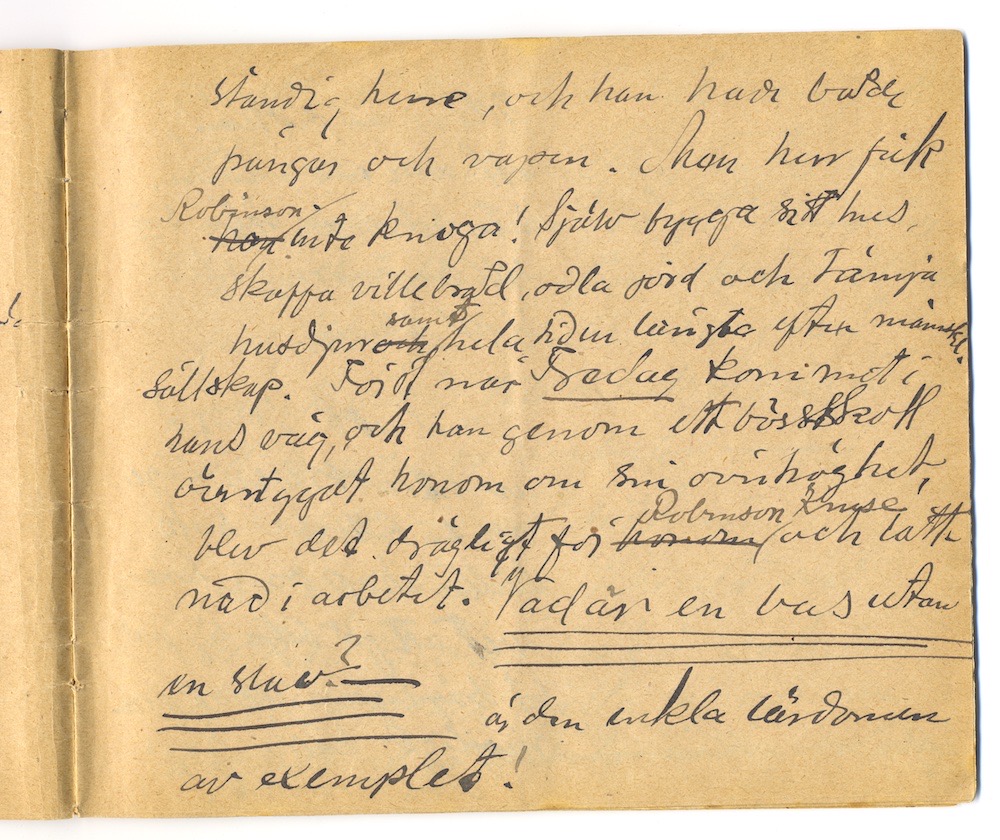 ständig herre, och han hade både
pängar och vapen. Men herr fick
Robinson
han inte knoga! Själv bygga sitt hus,
skaffa villebråd, odla jord och tämja
samt
husdjur och hela tiden längta efter mänskl.
sällskap. Först när Fredag kommit i
hans väg, och han genom ett bösskott
övertygat honom om sin överhöghet,
Robinson Kruse
blev det drägligt för honom och lätt
nad i arbetet. Vad är en bas utan
en slav?
är den enkla lärdomen
av exemplet!